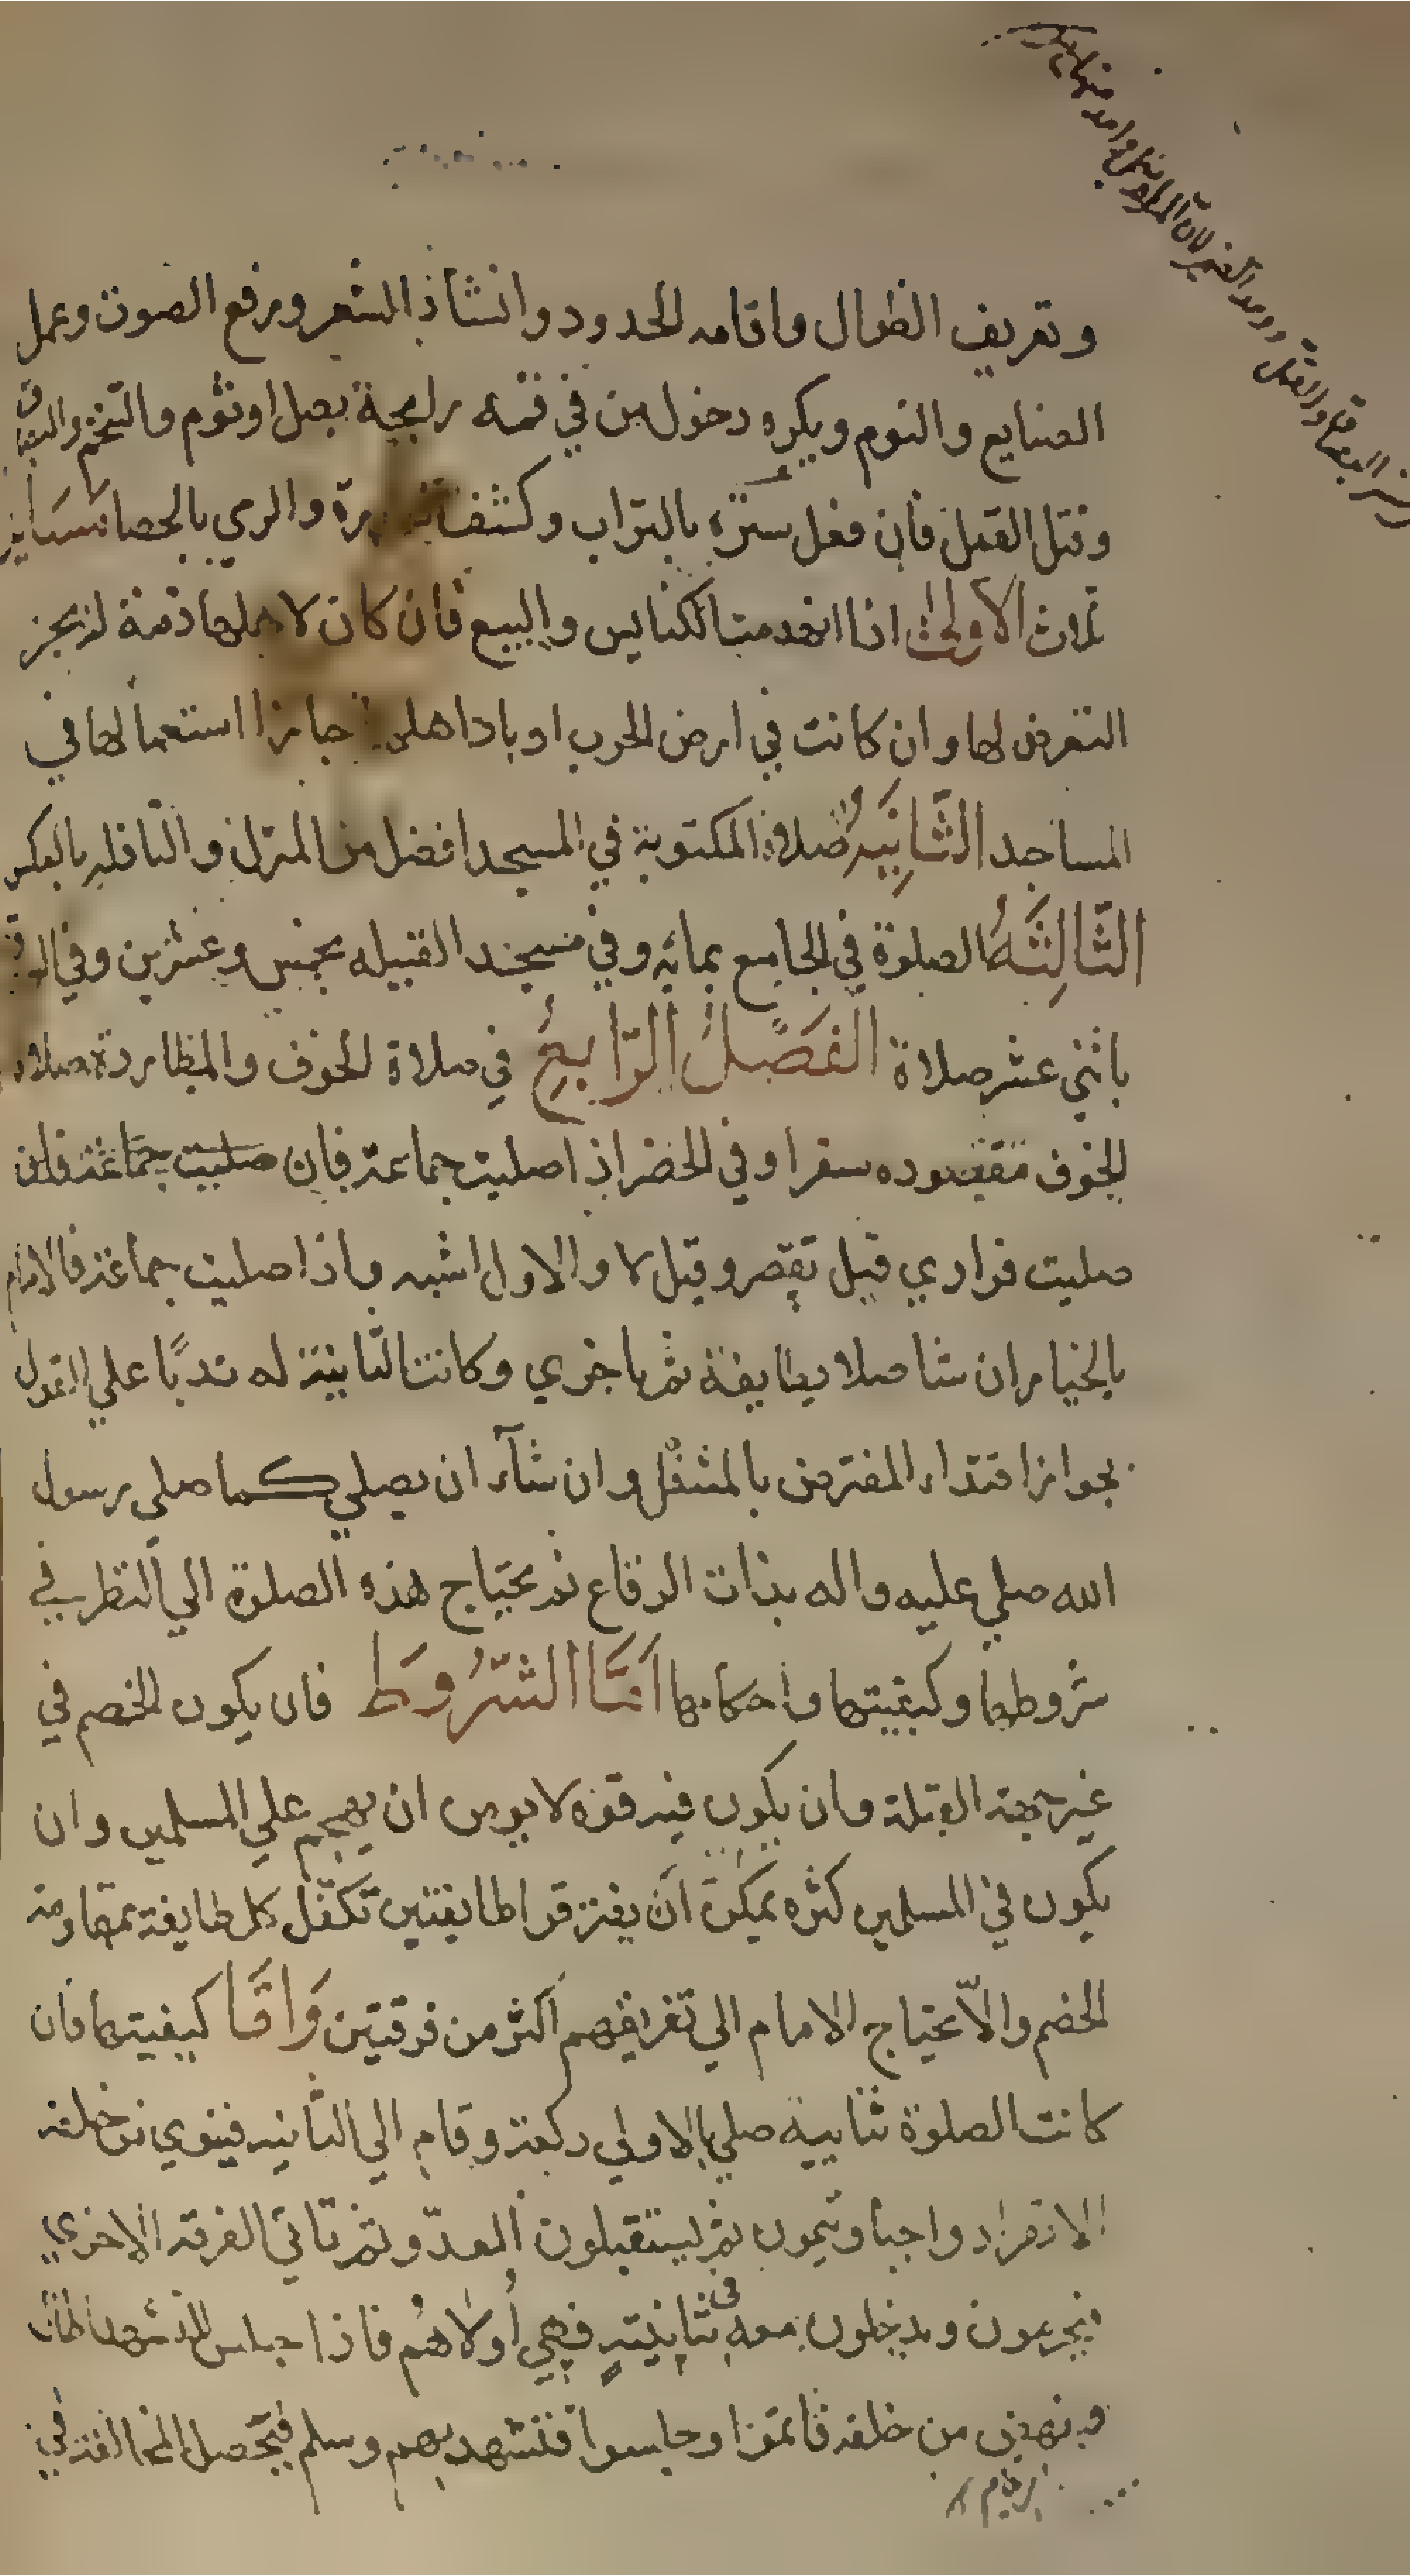 وتعريف الظوال واقامه الحدود وانشاذ الشعر ورفع الصوت وعمل
الصنايع والنوم ويكره دخول من في فمه رايحة بصل او ثوم والتنخم والبصاق
وقتل القمل فان فعل ستره بالتراب وكشف العورة والرمي بالحصا مسايل
ثلاث الاولى اذا انهدمت الكنايس والبيع فان كان لاهلها ذمة لم يجز
التعرض لها وان كانت في ارض الحرب او باد اهلها جاز استعمالها في
المساجد الثَّانِيَه صلاة المكتوبة في المسجد افضل من المنزل والنافله بالعكس
الثَّالِثَهُ الصلوة في الجامع بمائه وفي مسجد القبيله بخمس وعشرين وفي السوق
باثنى عشر صلاة الفَصْلُ الرّابِعُ في صلاة الخوف والمطاردة صلاة
الخوف مقصوده سفرا وفي الحضر اذا صليت جماعة فان صليت جماعة فان
صليت فرادي قيل تقصر وقيل لا والاول اشبه واذا صليت جماعة فالامام
بالخيار ان شا صلا بطايفة ثم باخري وكانت الثانية له ندبًا علي القول
بجواز اقتداء المفترض بالمتنفل وان شآء ان يصلي كما صلي رسول
الله صلي عليه واله بذات الرقاع ثم تحتاج هذه الصلوة الي النظر في
شروطها وكيفيتها واحكامها اَمَّا الشّرُوطَ فان يكون الخصم في
غير جهة القبلة وان يكون فيه قوه لا يومن ان يهجم علي المسلمين وان
يكون في المسلمين كثره يمكن اَن يفترقوا طايفتين تكفّل كل طايفة بمقاومة
الخصم والاّ يحتاج الامام الي تفريقهم اكثر من فرقتين وَاَمَّا كيفيتها فان
كانت الصلوة ثنايية صلي بالاولي ركعة وقام الي الثانيه فينوي من خلفه
الانفراد واجبا ويتمون ثم يستقبلون العدّو ثم تاتي الفرقه الاخري
فيحرمون ويدخلون معه في ثانيته فهي اُولاهُم فاذا جلس للتشهد اطال
وينهض من خلفه فاتموا وجلسوا فتشهد بهم وسلم فتحصل المخالفة في